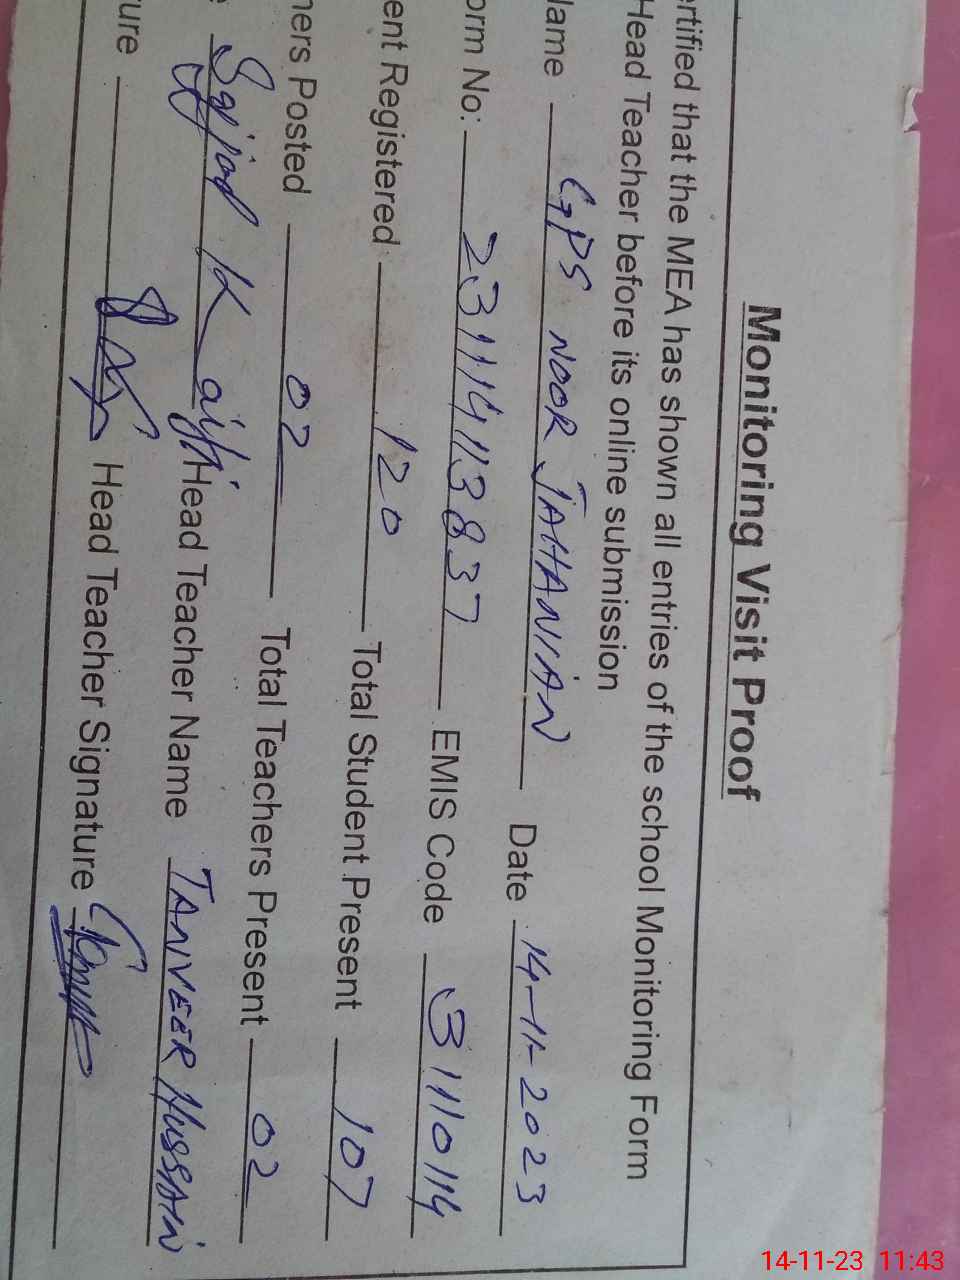 Monitoring Visit Proof
ertified that the MEA has shown all entries of the school Monitoring Form
Head Teacher before its online submission
Name GPS NOOR JAHANIAN Date 14-11-2023
orm No: 23111411383 7 EMIS Code 31110114
ent Registered 120 Total Student Present 107
hers Posted 02 Total Teachers Present 02
e Sajjad K Head Teacher Name TANVEER HUSSAIN
ture Head Teacher Signature
14-11-23 11:43